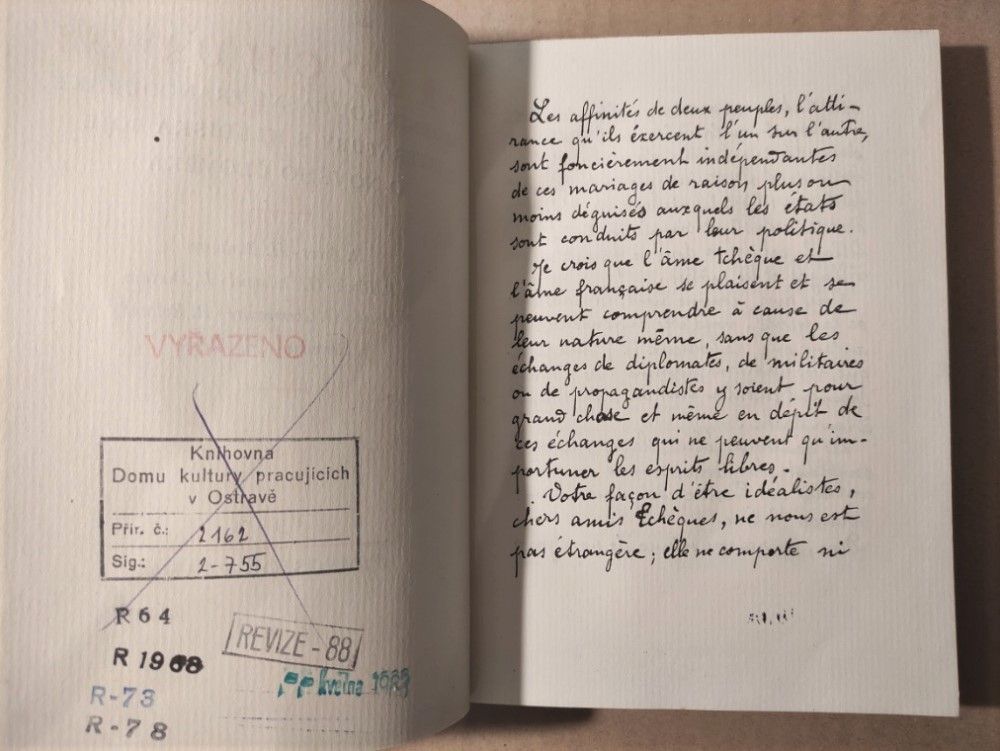 VYŘAZENO
Knihovna
Domu kultury pracujících
v Ostravě
Přír. č.: 2162
Sig.: 2-755
R 64
REVIZE - 88
R 1968
května 1989
R-73
R-78
Les affinités de deux peuples, l'atti-
rance qu'ils éxercent l'un sur l'autre,
sont foncièrement indépendantes
de ces mariages de raison plus ou
moins déguisés auxquels les états
sont conduits par leur politique.
Je crois que l'âme tchèque et
l'âme française se plaisent et se
peuvent comprendre à cause de
leur nature même, sans que les
échanges de diplomates, de militaires
ou de propagandistes y soient pour
grand chose et même en dépit de
ces échanges qui ne peuvent qu'im-
portuner les esprits libres.
Votre façon d'être idéalistes,
chers amis Tchèques, ne nous est
pas étrangère; elle ne comporte ni